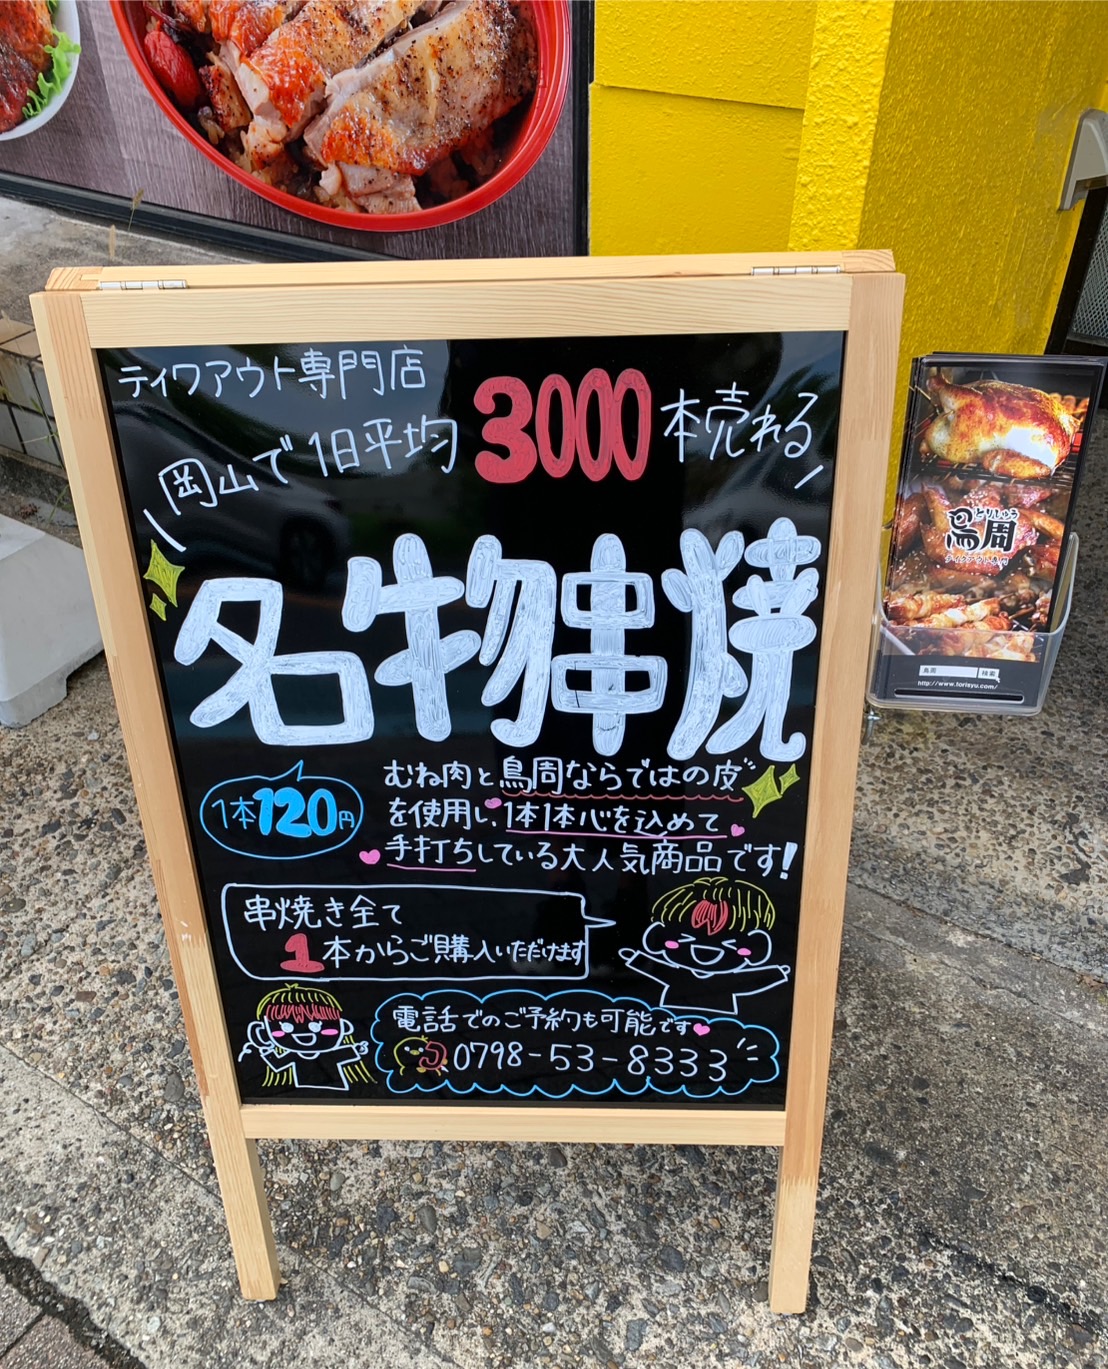 テイクアウト専門店
岡山で1日平均3000本売れる
名物串焼
1本120円
むね肉と鳥周ならではの皮
を使用し、1本1本心を込めて
手打ちしている大人気商品です!
串焼き全て
1本からご購入いただけます
電話でのご予約も可能です
0798-53-8333
とりしゅう
鳥周
テイクアウト専門
鳥周 検索
http://www.torisyu.com/